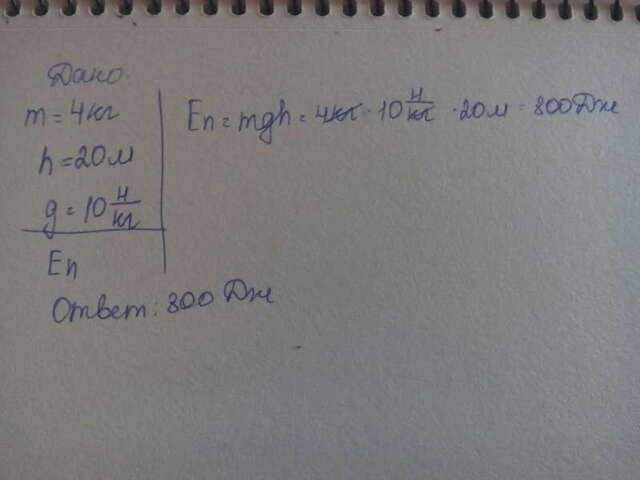 Дано.
m = 4кг
h = 20м
g = 10 н/кг
Eп
Eп = mgh = 4кг · 10 н/кг · 20м = 800 Дж
Ответ: 800 Дж